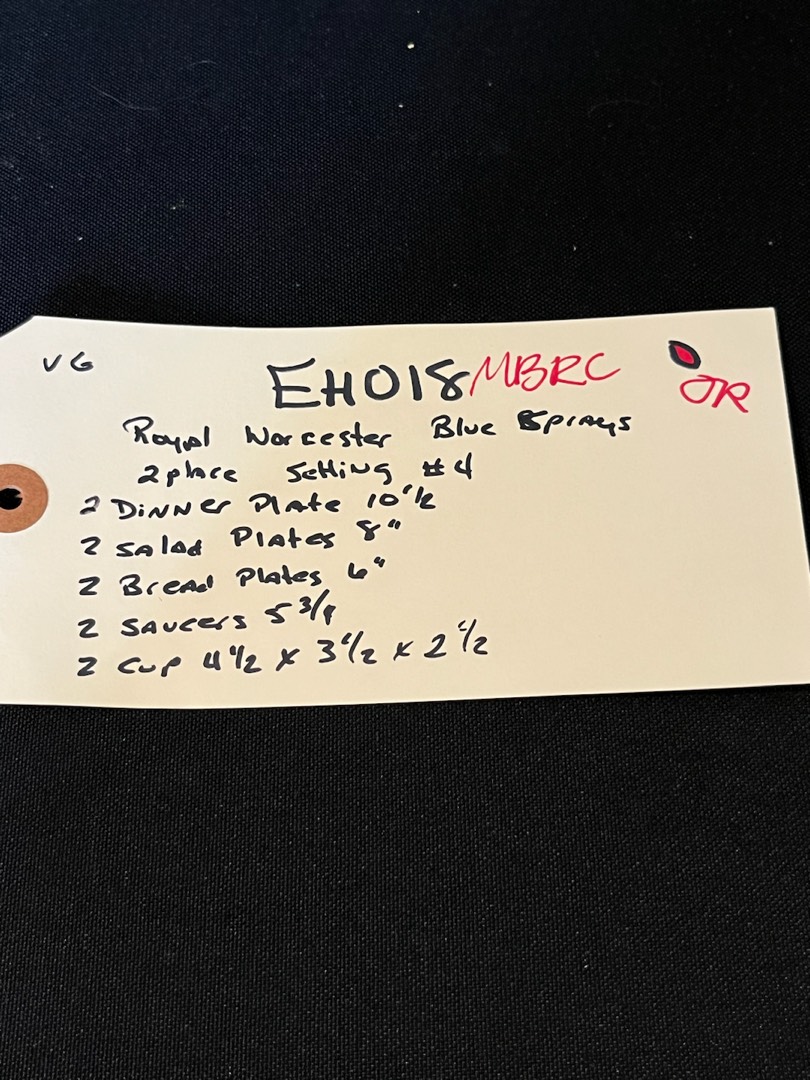 VG
EH018 MBRC
JR
Royal Worcester Blue Sprays
2 place Setting #4
2 Dinner Plate 10 1/2
2 Salad Plates 8"
2 Bread Plates 6"
2 Saucers 5 3/4
2 Cup 4 1/2 x 3 1/2 x 2 1/2